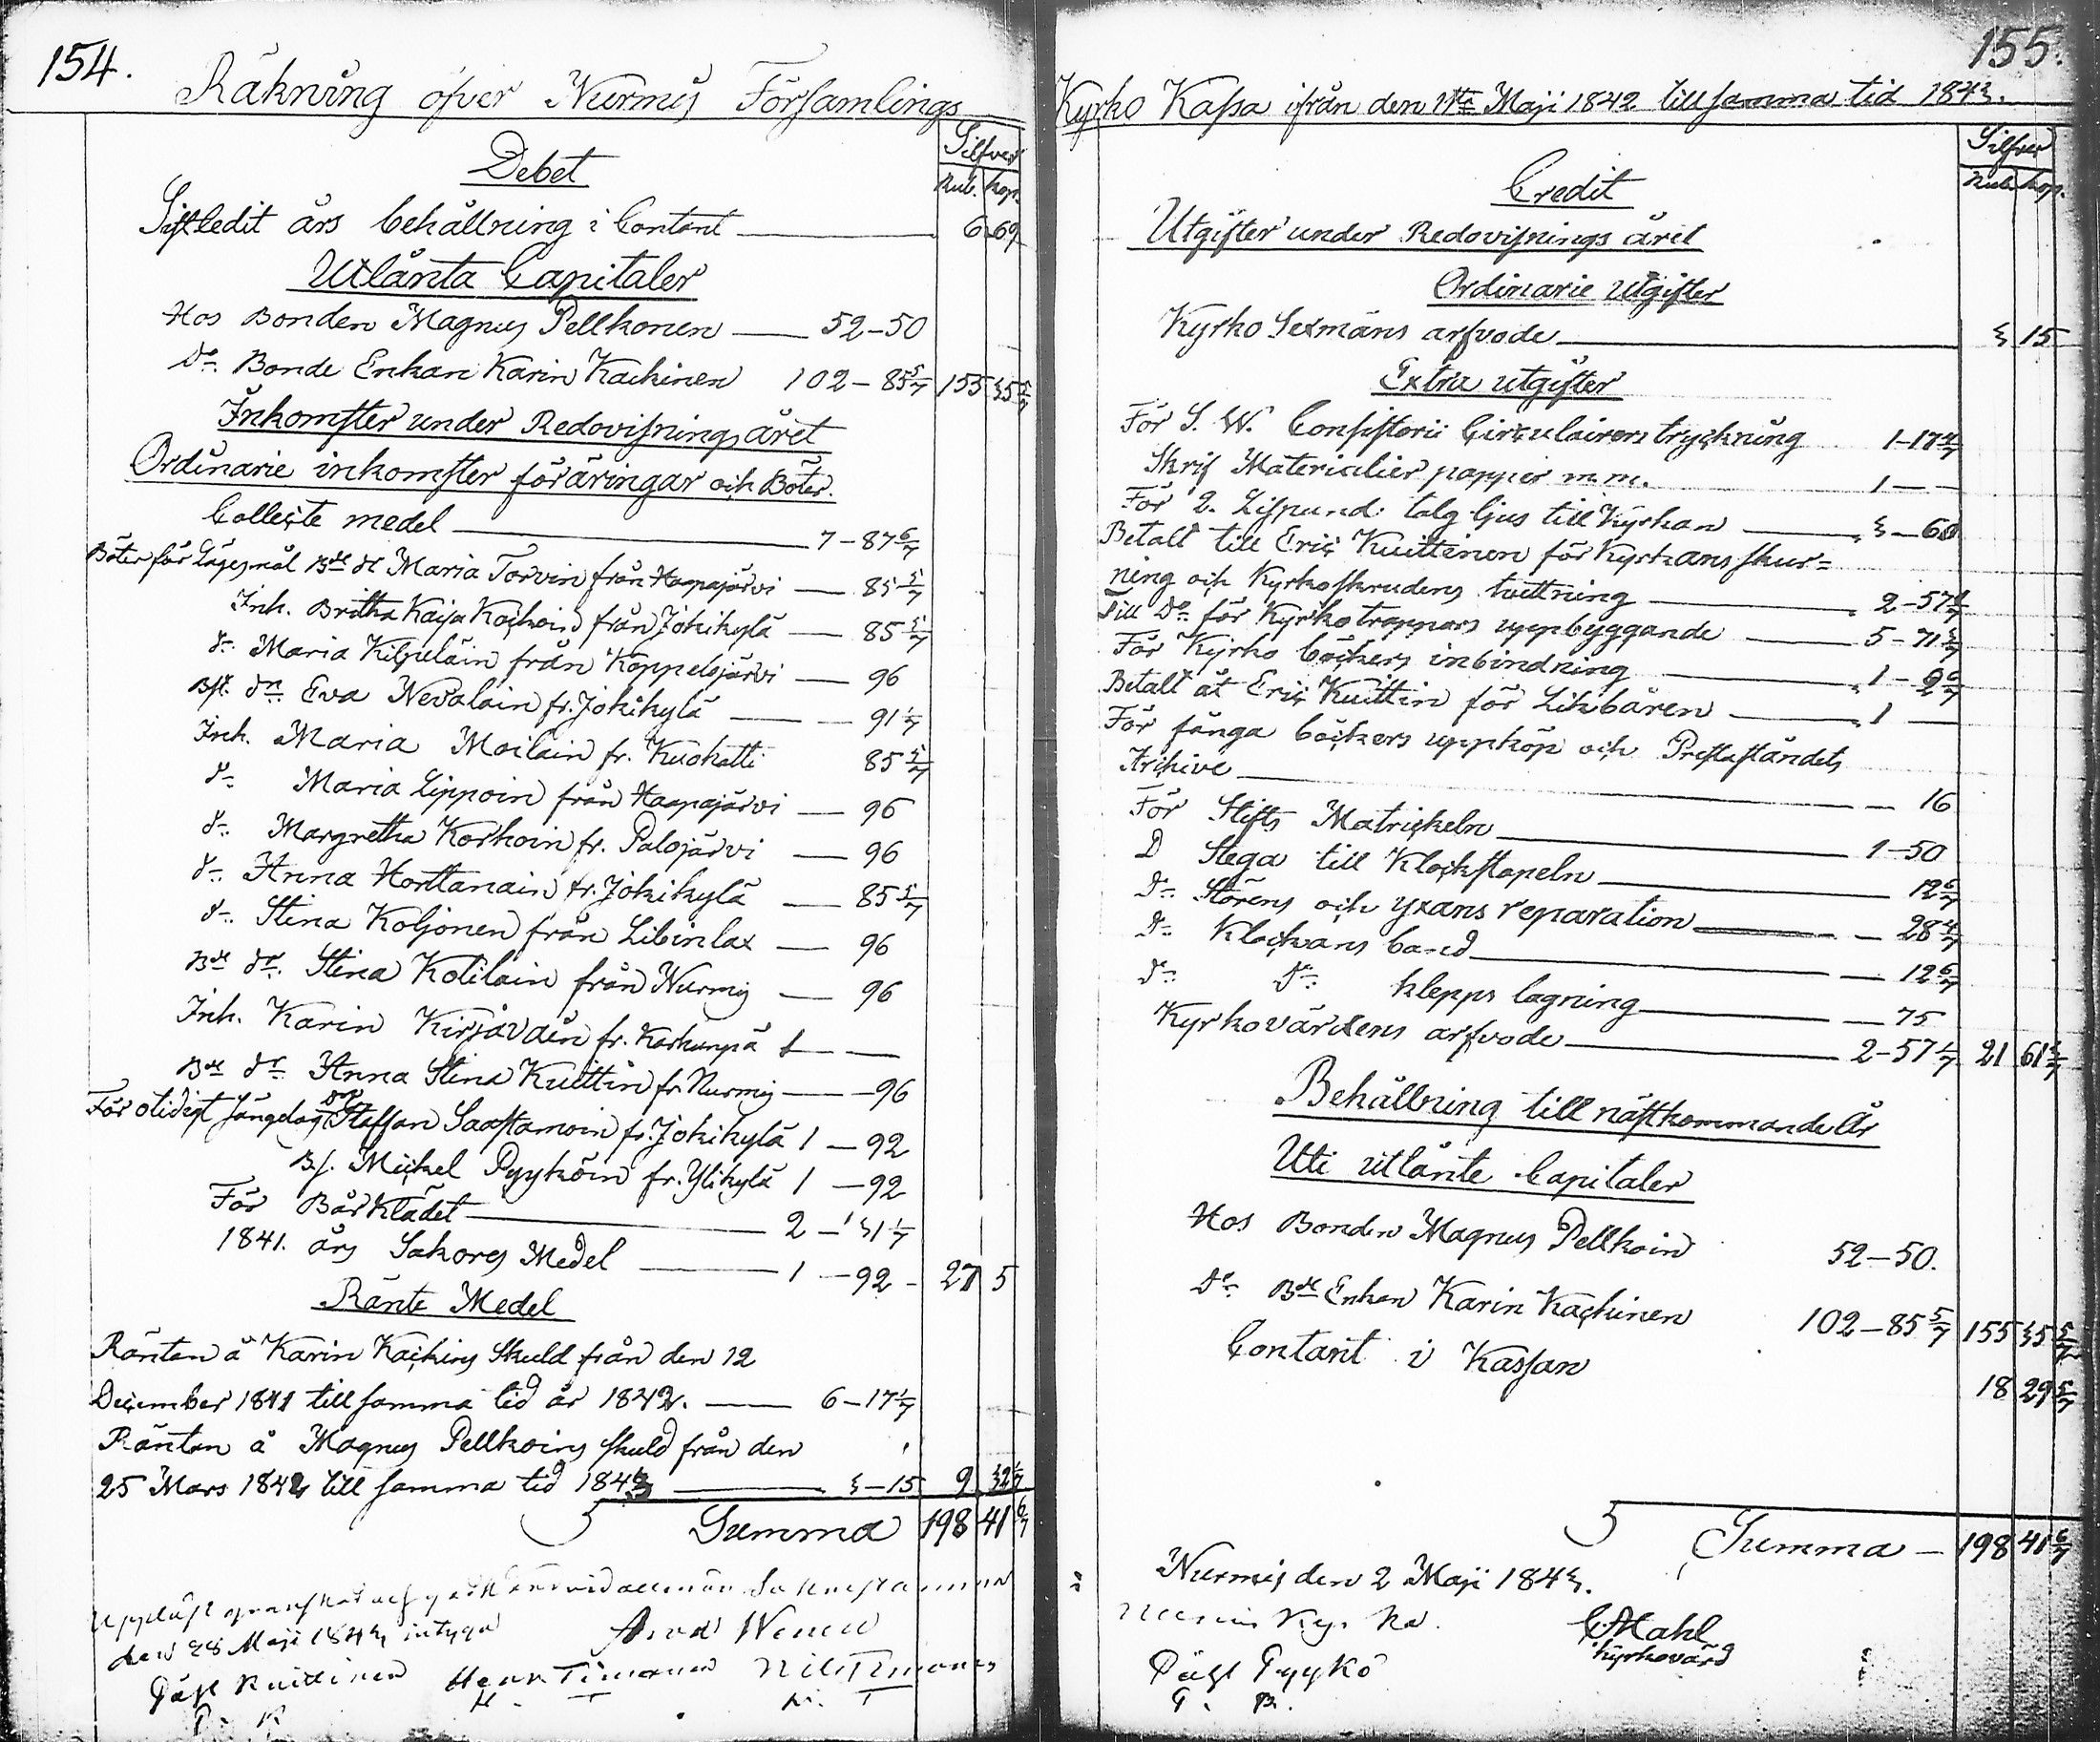 154.
Räkning öfver Nurmis Församlings
Silfver
Rub. kop.
Debet
Sistledit års behållning i Contant 6 69
Utlånta Capitaler
Hos Bonden Magnus Pellkonen 52-50
Do Bonde Enkan Karin Kackinen 102-85 5/7 155 35 5/7
Inkomster under Redovisnings året
Ordinarie inkomster föräringar och Böter.
Collecte medel 7-87 6/7
Böter för Lägersmål Bde dr Maria Torvin från Haapajärvi 85 5/7
Inh. Britha Kaisa Kochoin från Jokikylä 85 5/7
do Maria Kilpeläin från Koppelojärvi 96
Bde dr Eva Nevalain fr. Jokikylä 91 1/7
Inh. Maria Moilain fr. Kuohatti 85 5/7
do Maria Lippoin från Haapajärvi 96
do Margretha Korhoin fr. Palojärvi 96
do Anna Horttanain fr. Jokikylä 85 5/7
do Stina Koljonen från Libinlax 96
Bde dr. Stina Kotilain från Nurmis 96
Inh. Karin Kirjavain fr. Karhunpä 1
Bde dr Anna Stina Kuittin fr Nurmis 96
För otidigt sängelag Staffan Saastamoin fr. Jokikylä 1-92
Bs. Mickel Pyyköin fr. Ylikylä 1-92
För Bårklädet 2-31 1/7
1841. års Sakörs Medel 1-92 27 5
Ränte Medel
Räntan å Karin Kackins Skuld från den 12
December 1841 till samma tid år 1842. 6-17 1/7
Räntan å Magnus Pellkoins skuld från den
25 Mars 1842 till samma tid 1843 3-15 9 32 1/7
Summa 198 41 6/7
den 28 Maji 1843 intyga
Påhl Kuittinen Henr Timonen Nils Timonen
P. K H. T N. T
155.
Kyrko Kassa ifrån den 1ste Maji 1842 till samma tid 1843.
Silfver
Rub. kop.
Credit
Utgifter under Redovisnings året
Ordinarie Utgifter
Kyrko Sexmäns arfvode 3 15
Extra utgifter
För S. W. Consistorii Circulairers tryckning 1-17 4/7
Skrif Materialier papper m.m. 1
För 2. Lispund: talg ljus till Kyrkan 3-60
Betalt till Eric Kuittinen för Kyrkans skur=
ning och Kyrkoskrudens tvettning 2-57 1/7
Till Do för Kyrkotrappors uppbyggande 5-71 3/7
För Kyrko böckers inbindning 1-2 6/7
Betalt åt Eric Kuittin för Likbåren 1
För fånga böckers uppköp och Prestaståndets
Archive 16
För Stifts Matrickeln 1-50
D Stega till Klockstapeln 12 6/7
do Störens och yxans reparation 28 4/7
do Klockans band 12 6/7
do do klepps lagning 75
Kyrkovärdens arfvode 2-57 1/7 21 61 3/7
Behållning till nästkommande År
Uti utlånte Capitaler
Hos Bonden Magnus Pellkoin 52-50.
Do Bde Enkan Karin Kackinen 102-85 5/7 155 35 5/7
Contant i Kassan 18 29 5/7
Summa 198 41 6/7
Nurmis den 2 Maji 1843.
C Mahl
Kyrkovärd
Påhl Pyykö
P. P.